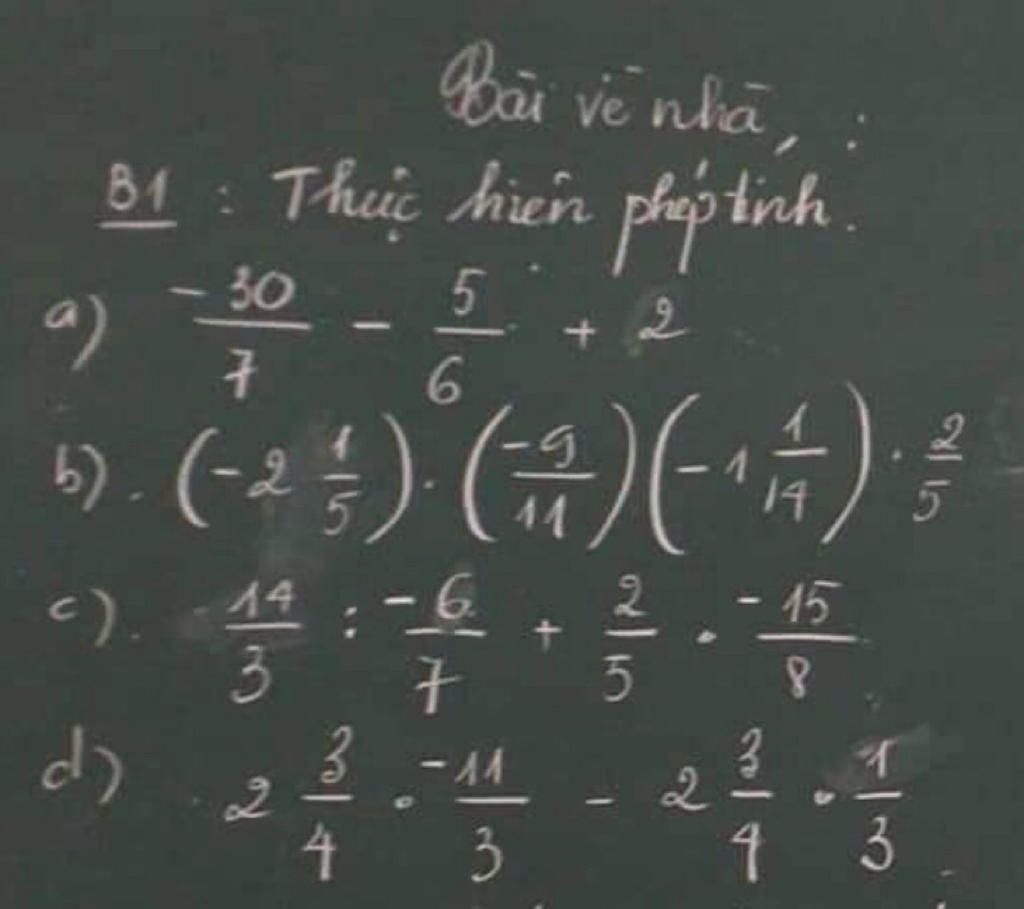 Bài về nhà :
B1 : Thực hiện phép tính.
a) -30/7 - 5/6 + 2
b). (-2 1/5) . (-9/11) (-1 1/14) . 2/5
c). 14/3 : -6/7 + 2/5 . -15/8
d) 2 3/4 . -11/3 - 2 3/4 . 1/3